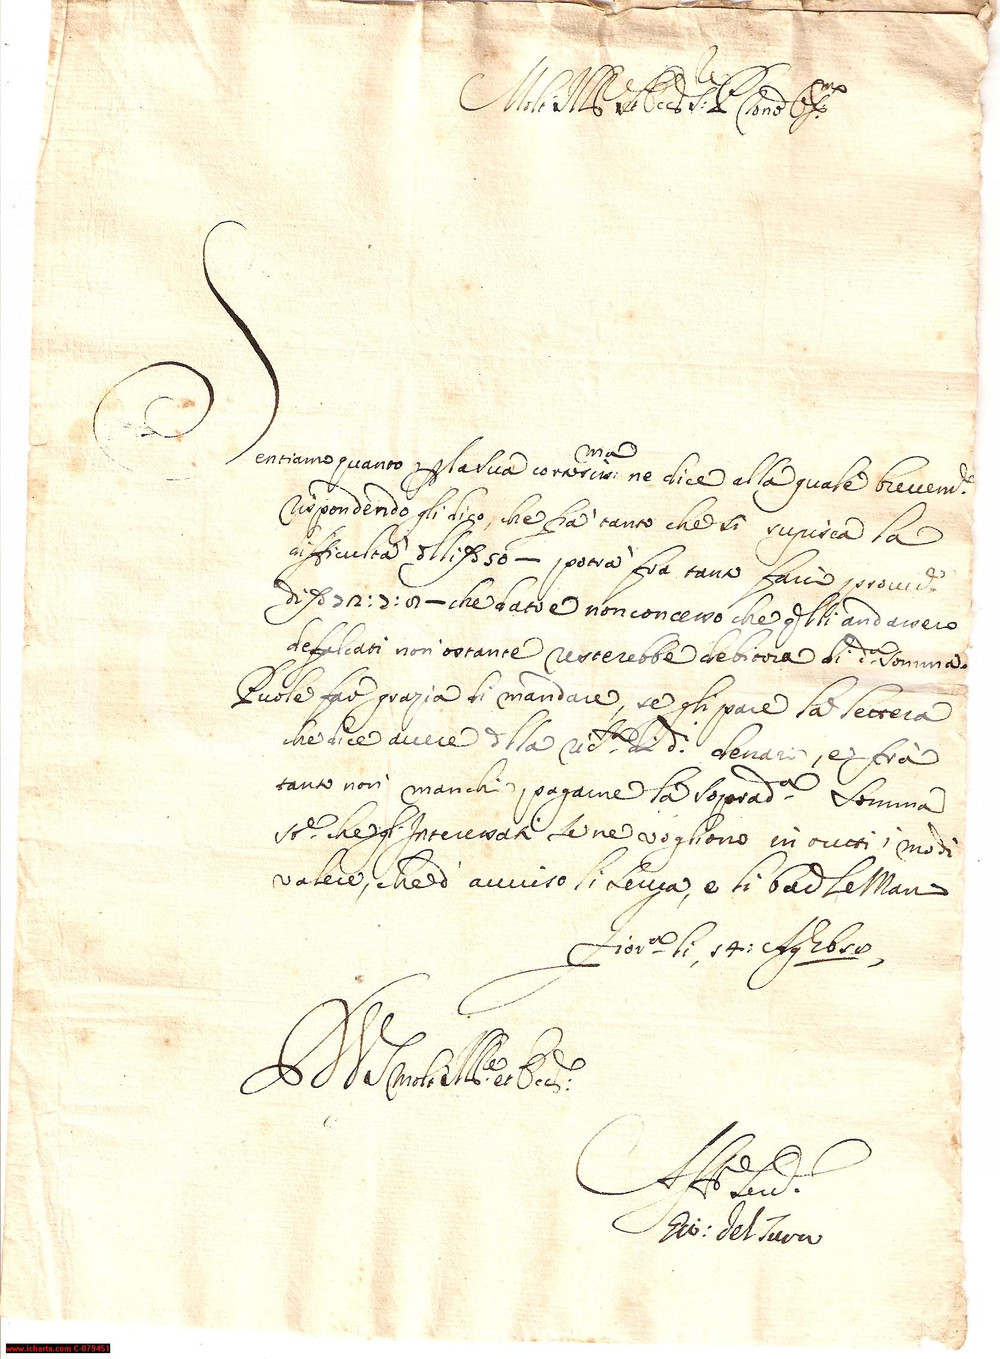 Molt' Ill.re et Ecc.te S.r P'rone Oss.mo
Sentiamo quanto p la sua cortesiss:ma ne dice alla quale brevem.te
rispondendo gli dico, che fra tanto che si supisca la
difficultà dlli 50 — potrà fra tanto farci proved.re
di 72: 3: 8 — che dato e non concesso che qlli andassero
defalcati non ostante resterebbe debitora di d.a somma.
Vuole far grazia di mandare, se gli pare la lettera
che dice avere dlla di d.i denari, e frà
tanto non manchi pagarne la soprad.a somma
st.e che gl' Interessati se ne vogliono in tutti i modi
valere, che d' avviso li serva, e li bacio le Man
li, 14: Ag.to
Di V S Molt' Ill.re et Ecc.te
Aff.mo Ser.re
Gio: del
www.icharta.com C-079451